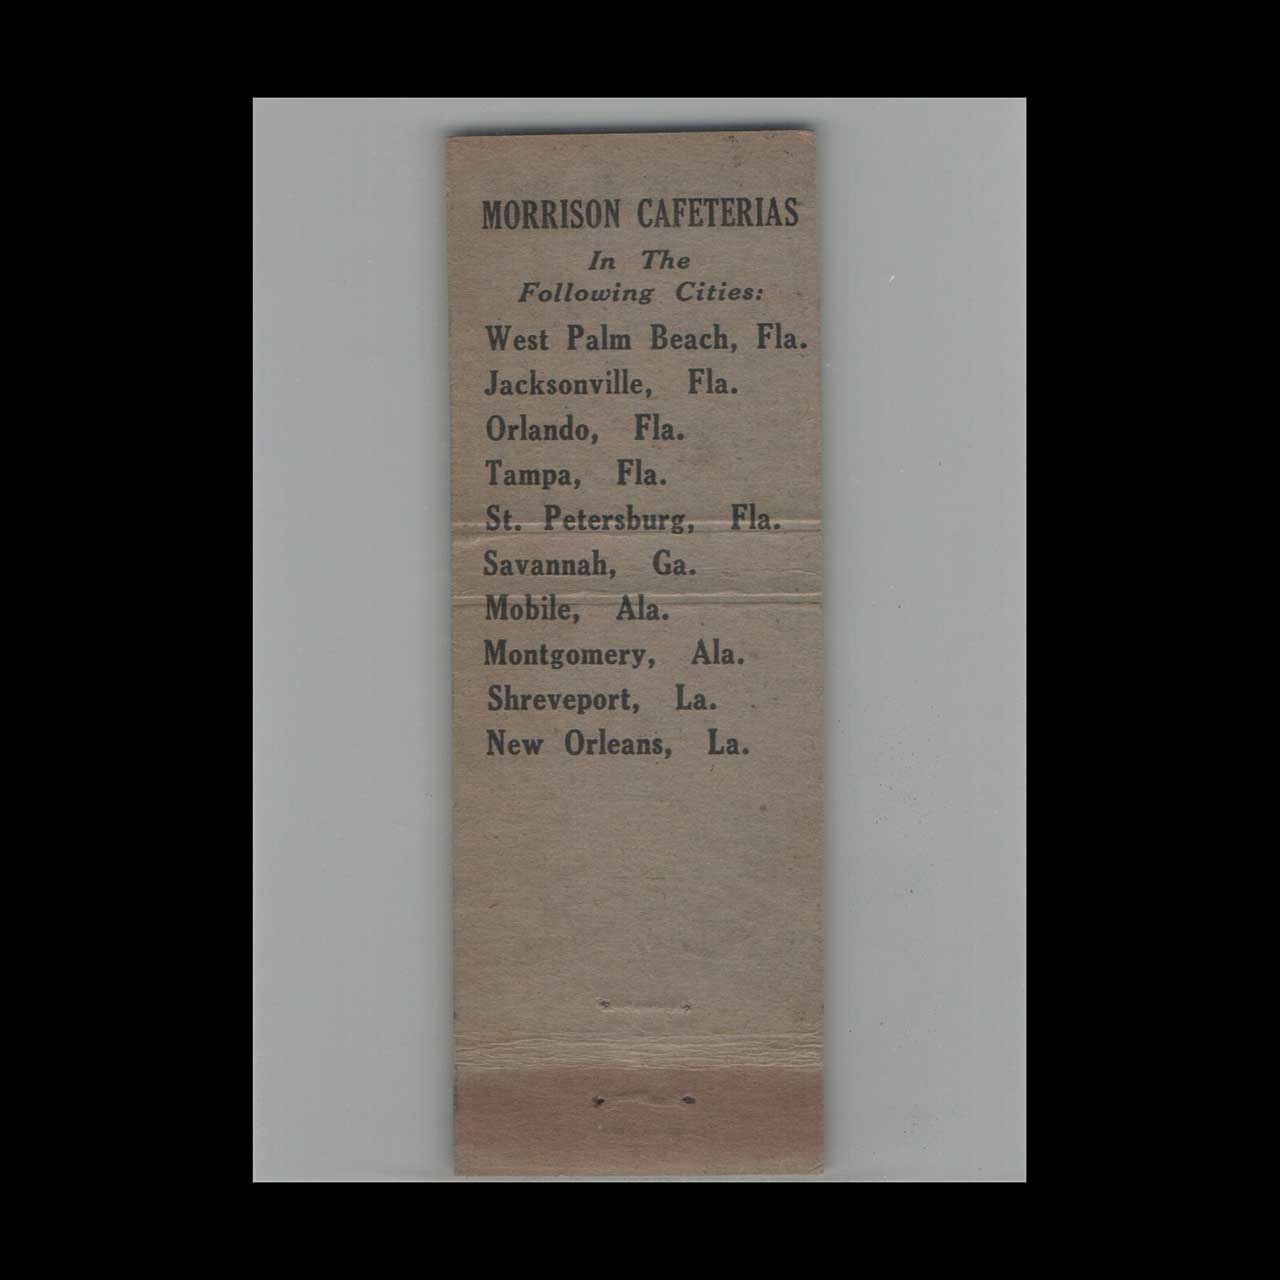 MORRISON CAFETERIAS
In The
Following Cities:
West Palm Beach, Fla.
Jacksonville, Fla.
Orlando, Fla.
Tampa, Fla.
St. Petersburg, Fla.
Savannah, Ga.
Mobile, Ala.
Montgomery, Ala.
Shreveport, La.
New Orleans, La.